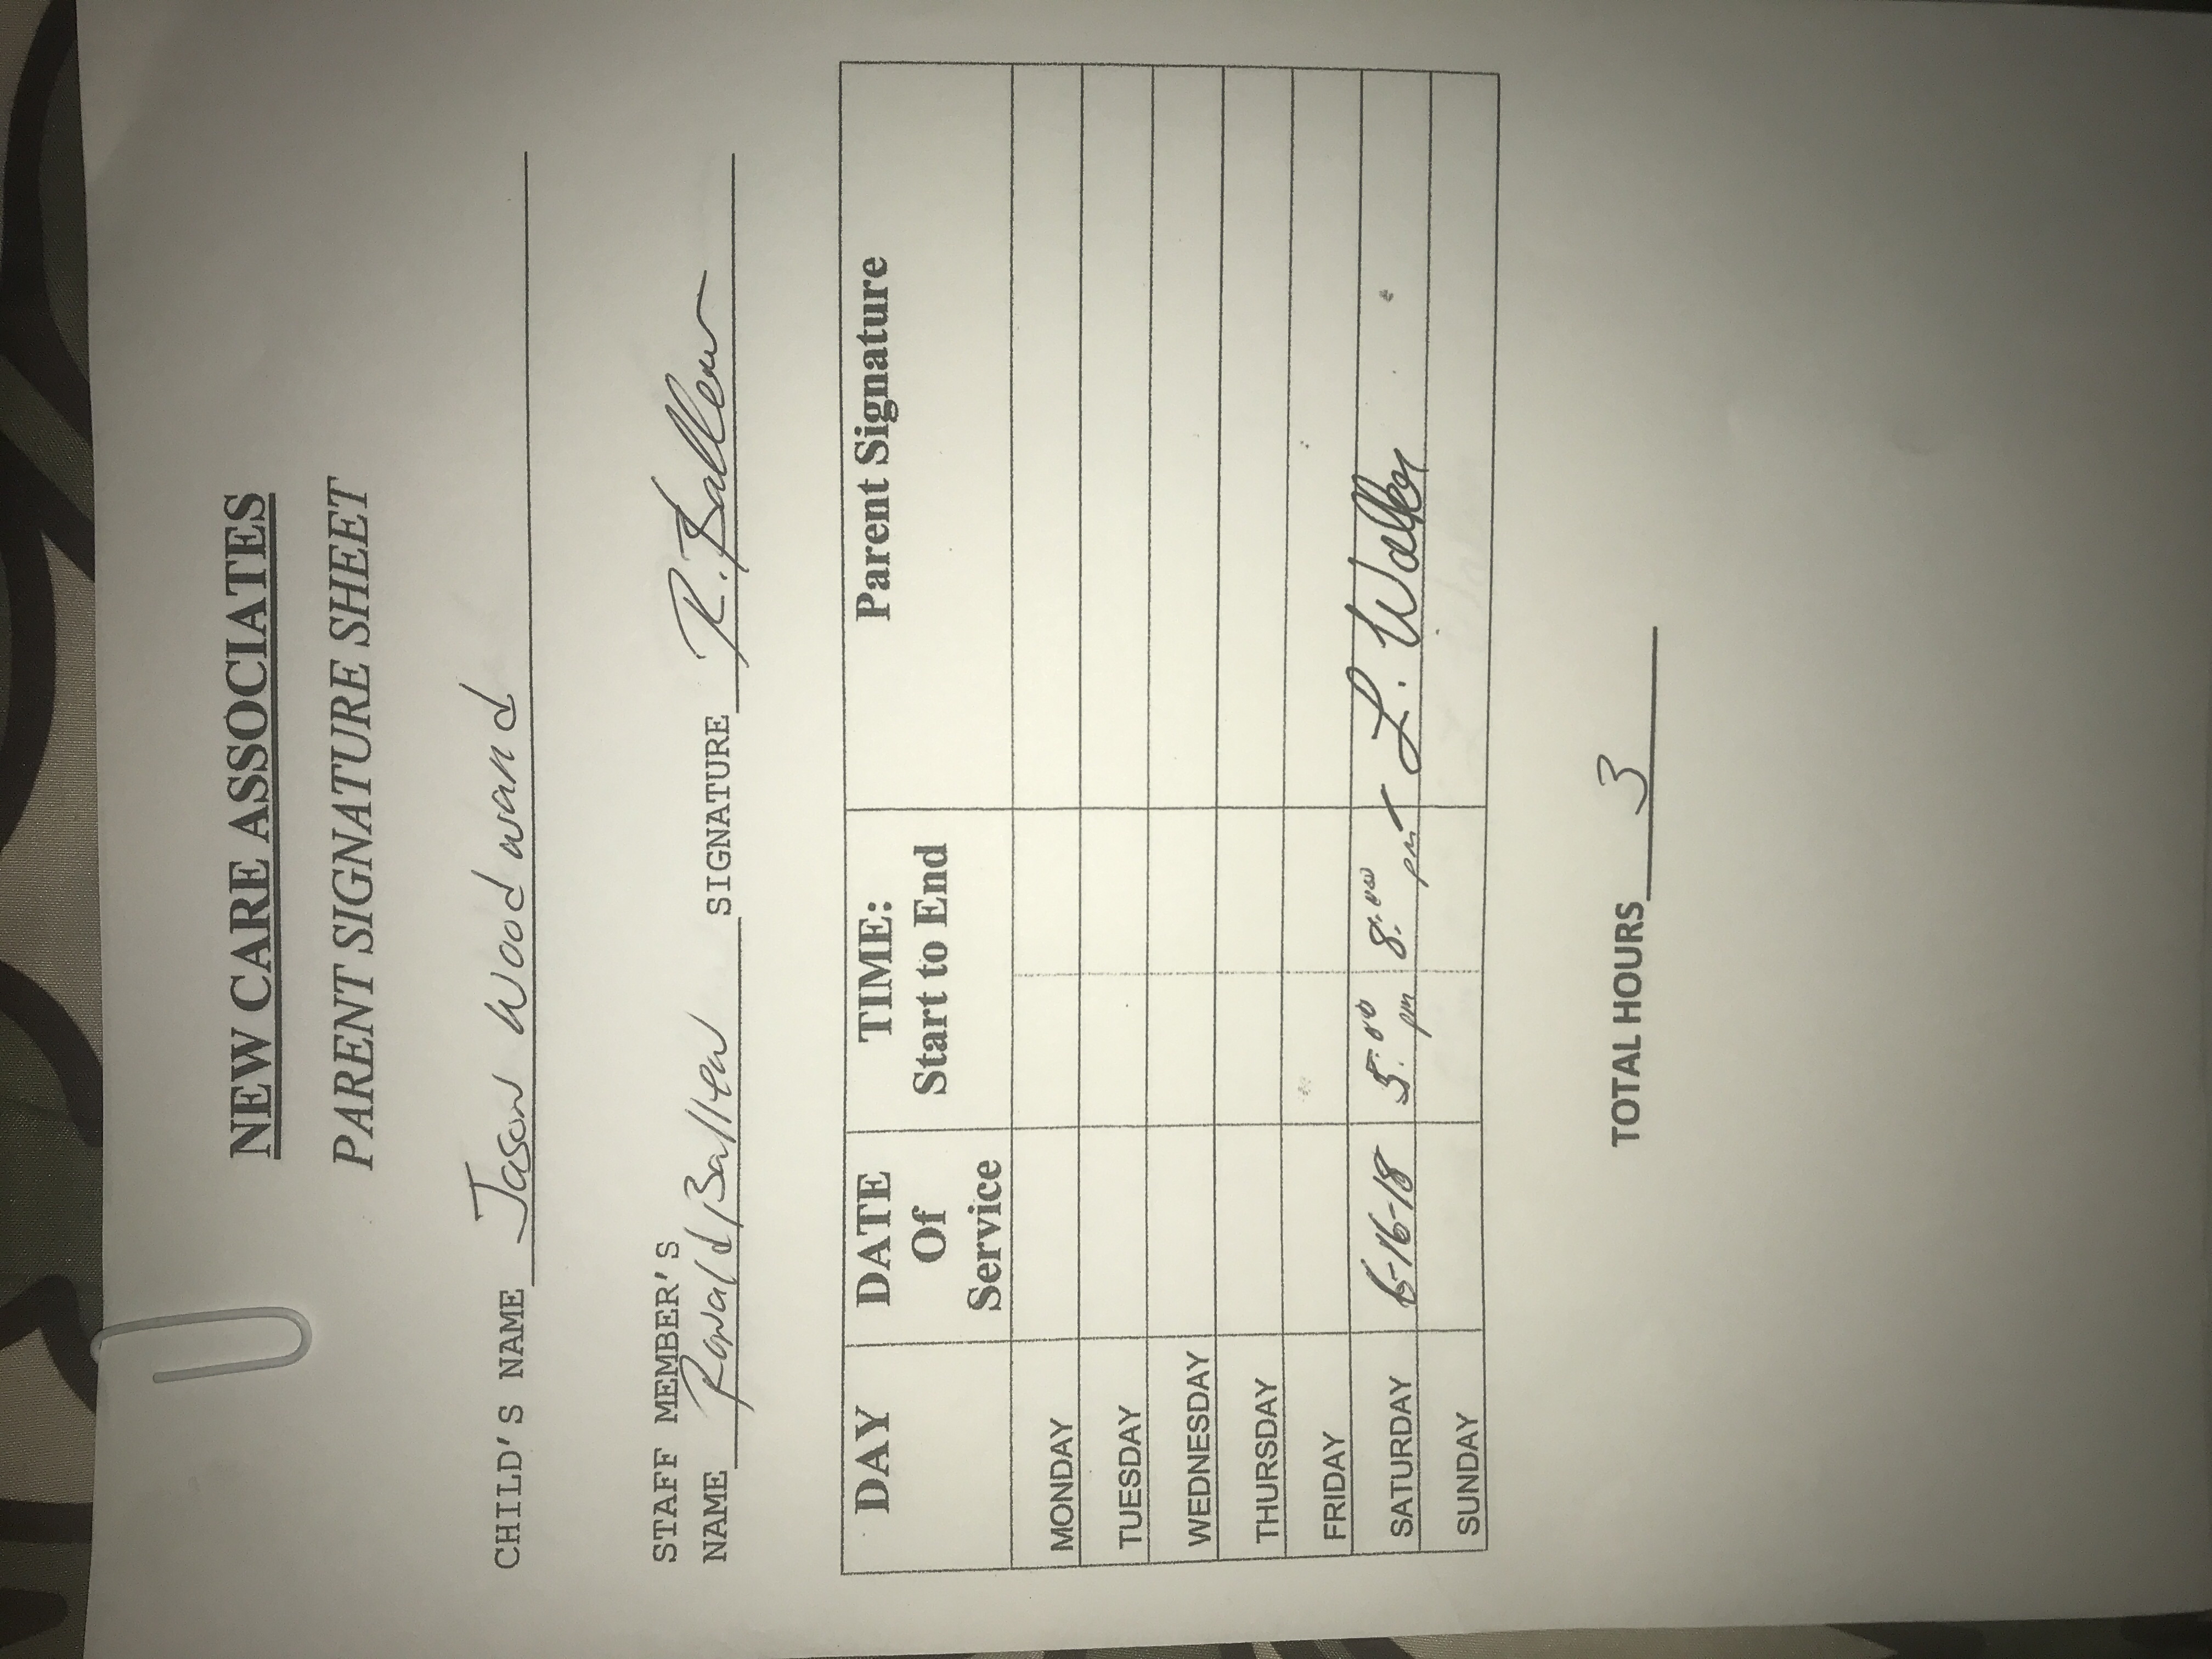 NEW CARE ASSOCIATES
PARENT SIGNATURE SHEET
CHILD'S NAME Jason Woodward
STAFF MEMBER'S
NAME Ronald Ballew SIGNATURE R. Ballew
DAY DATE Of Service TIME: Start to End Parent Signature
MONDAY
TUESDAY
WEDNESDAY
THURSDAY
FRIDAY
SATURDAY 6-16-18 5:00 pm 8:00 pm L. Walker
SUNDAY
TOTAL HOURS 3